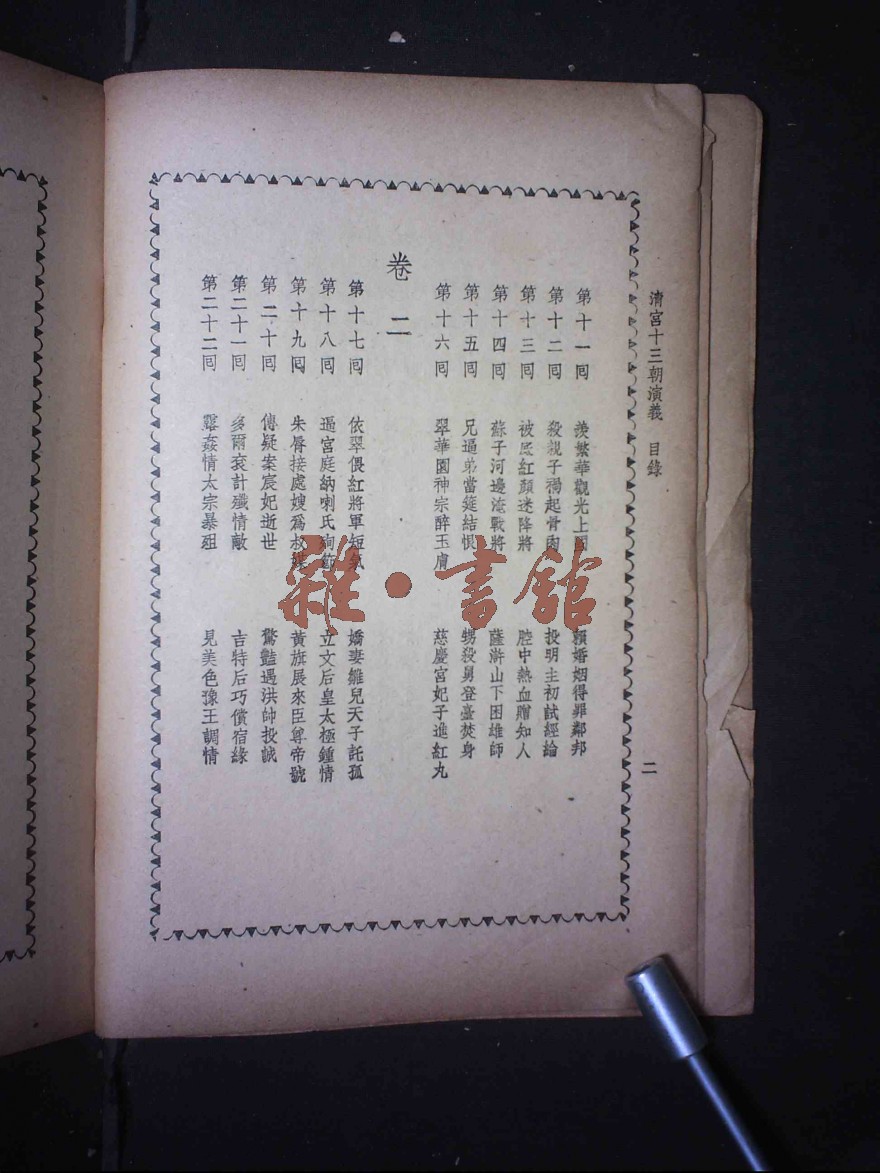 清宮十三朝演義 目錄
二
第十一囘 羨繁華觀光上國 賴婚姻得罪鄰邦
第十二囘 殺親子禍起骨肉 投明主初試經綸
第十三囘 被底紅顏迷降將 腔中熱血贈知人
第十四囘 蘇子河邊淹戰將 薩滸山下困雄師
第十五囘 兄逼弟當筵結恨 甥殺舅登臺焚身
第十六囘 翠華園神宗醉玉膚 慈慶宮妃子進紅丸
卷二
第十七囘 依翠偎紅將軍短氣 嬌妻雛兒天子託孤
第十八囘 逼宮庭納喇氏殉節 立文后皇太極鍾情
第十九囘 朱脣接處嫂爲叔媒 黃旗展來臣尊帝號
第二十囘 傳疑案宸妃逝世 驚豔遇洪帥投誠
第二十一囘 多爾袞計殲情敵 吉特后巧償宿緣
第二十二囘 露姦情太宗暴殂 見美色豫王調情
雜·書館